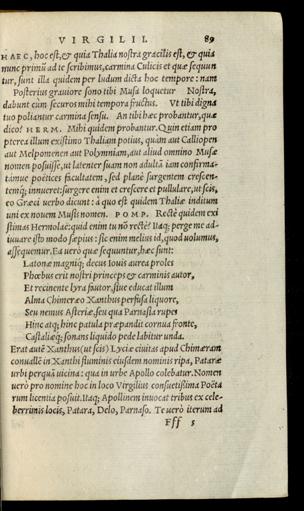 VIRGILII. 89
HAEC, hoc est, & quia Thalia nostra gracilis est, & quia
nunc primũ ad te scribimus, carmina Culicis et quæ sequun
tur, sunt illa quidem per ludum dicta hoc tempore: nam
Posterius grauiore sono tibi Musa loquetur Nostra,
dabunt cum securos mihi tempora fructus. Vt tibi digna
tuo poliantur carmina sensu. An tibi hæc probantur, quæ
dico? HERM. Mihi quidem probantur. Quin etiam pro
pterea illum existimo Thaliam potius, quàm aut Calliopen
aut Melpomenen aut Polymniam, aut aliud omnino Musæ
nomen posuisse, ut latenter suam non adultã iam confirma-
tamue poëtices facultatem, sed planè surgentem crescen-
temq; innueret: surgere enim et crescere et pullulare, ut scis,
eo Græci uerbo dicunt: à quo est quidem Thaliæ inditum
uni ex nouem Musis nomen. POMP. Rectè quidem exi
stimas Hermolaë: quid enim tu nõ rectè? Itaq; perge me ad-
iuuare isto modo sæpius: sic enim melius id, quod uolumus,
assequemur. Ea uerò quæ sequuntur, hæc sunt:
Latonæ magniq; decus Iouis aurea proles
Phœbus erit nostri princeps & carminis autor,
Et recinente lyra fautor, siue educat illum
Alma Chimæreo Xanthus perfusa liquore,
Seu nemus Asteriæ, seu qua Parnasia rupes
Hinc atq; hinc patula præpandit cornua fronte,
Castaliæq; sonans liquido pede labitur unda.
Erat autẽ Xanthus (ut scis) Lyciæ ciuitas apud Chimæram
conuallẽ in Xanthi fluminis eiusdem nominis ripa, Pataræ
urbi perquã uicina: qua in urbe Apollo colebatur. Nomen
uerò pro nomine hoc in loco Virgilius consuetissima Poëta
rum licentia posuit. Itaq; Apollinem inuocat tribus ex cele-
berrimis locis, Patara, Delo, Parnaso. Te uerò iterum ad
Fff 5